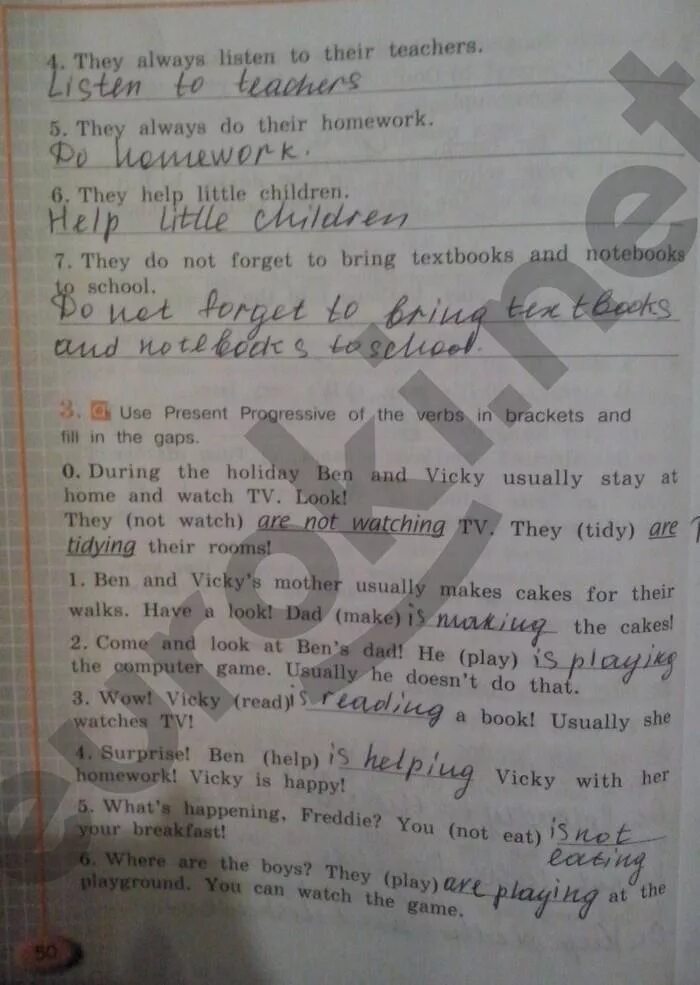 4. They always listen to their teachers.
Listen to teachers
5. They always do their homework.
Do homework.
6. They help little children.
Help little children
7. They do not forget to bring textbooks and notebooks
to school.
Do not forget to bring textbooks
and notebooks to school.
3. Use Present Progressive of the verbs in brackets and
fill in the gaps.
0. During the holiday Ben and Vicky usually stay at
home and watch TV. Look!
They (not watch) are not watching TV. They (tidy) are
tidying their rooms!
1. Ben and Vicky's mother usually makes cakes for their
walks. Have a look! Dad (make) is making the cakes!
2. Come and look at Ben's dad! He (play) is playing
the computer game. Usually he doesn't do that.
3. Wow! Vicky (read) is reading a book! Usually she
watches TV!
4. Surprise! Ben (help) is helping Vicky with her
homework! Vicky is happy!
5. What's happening, Freddie? You (not eat) is not
eating
your breakfast!
6. Where are the boys? They (play) are playing at the
playground. You can watch the game.
50
euroki.net